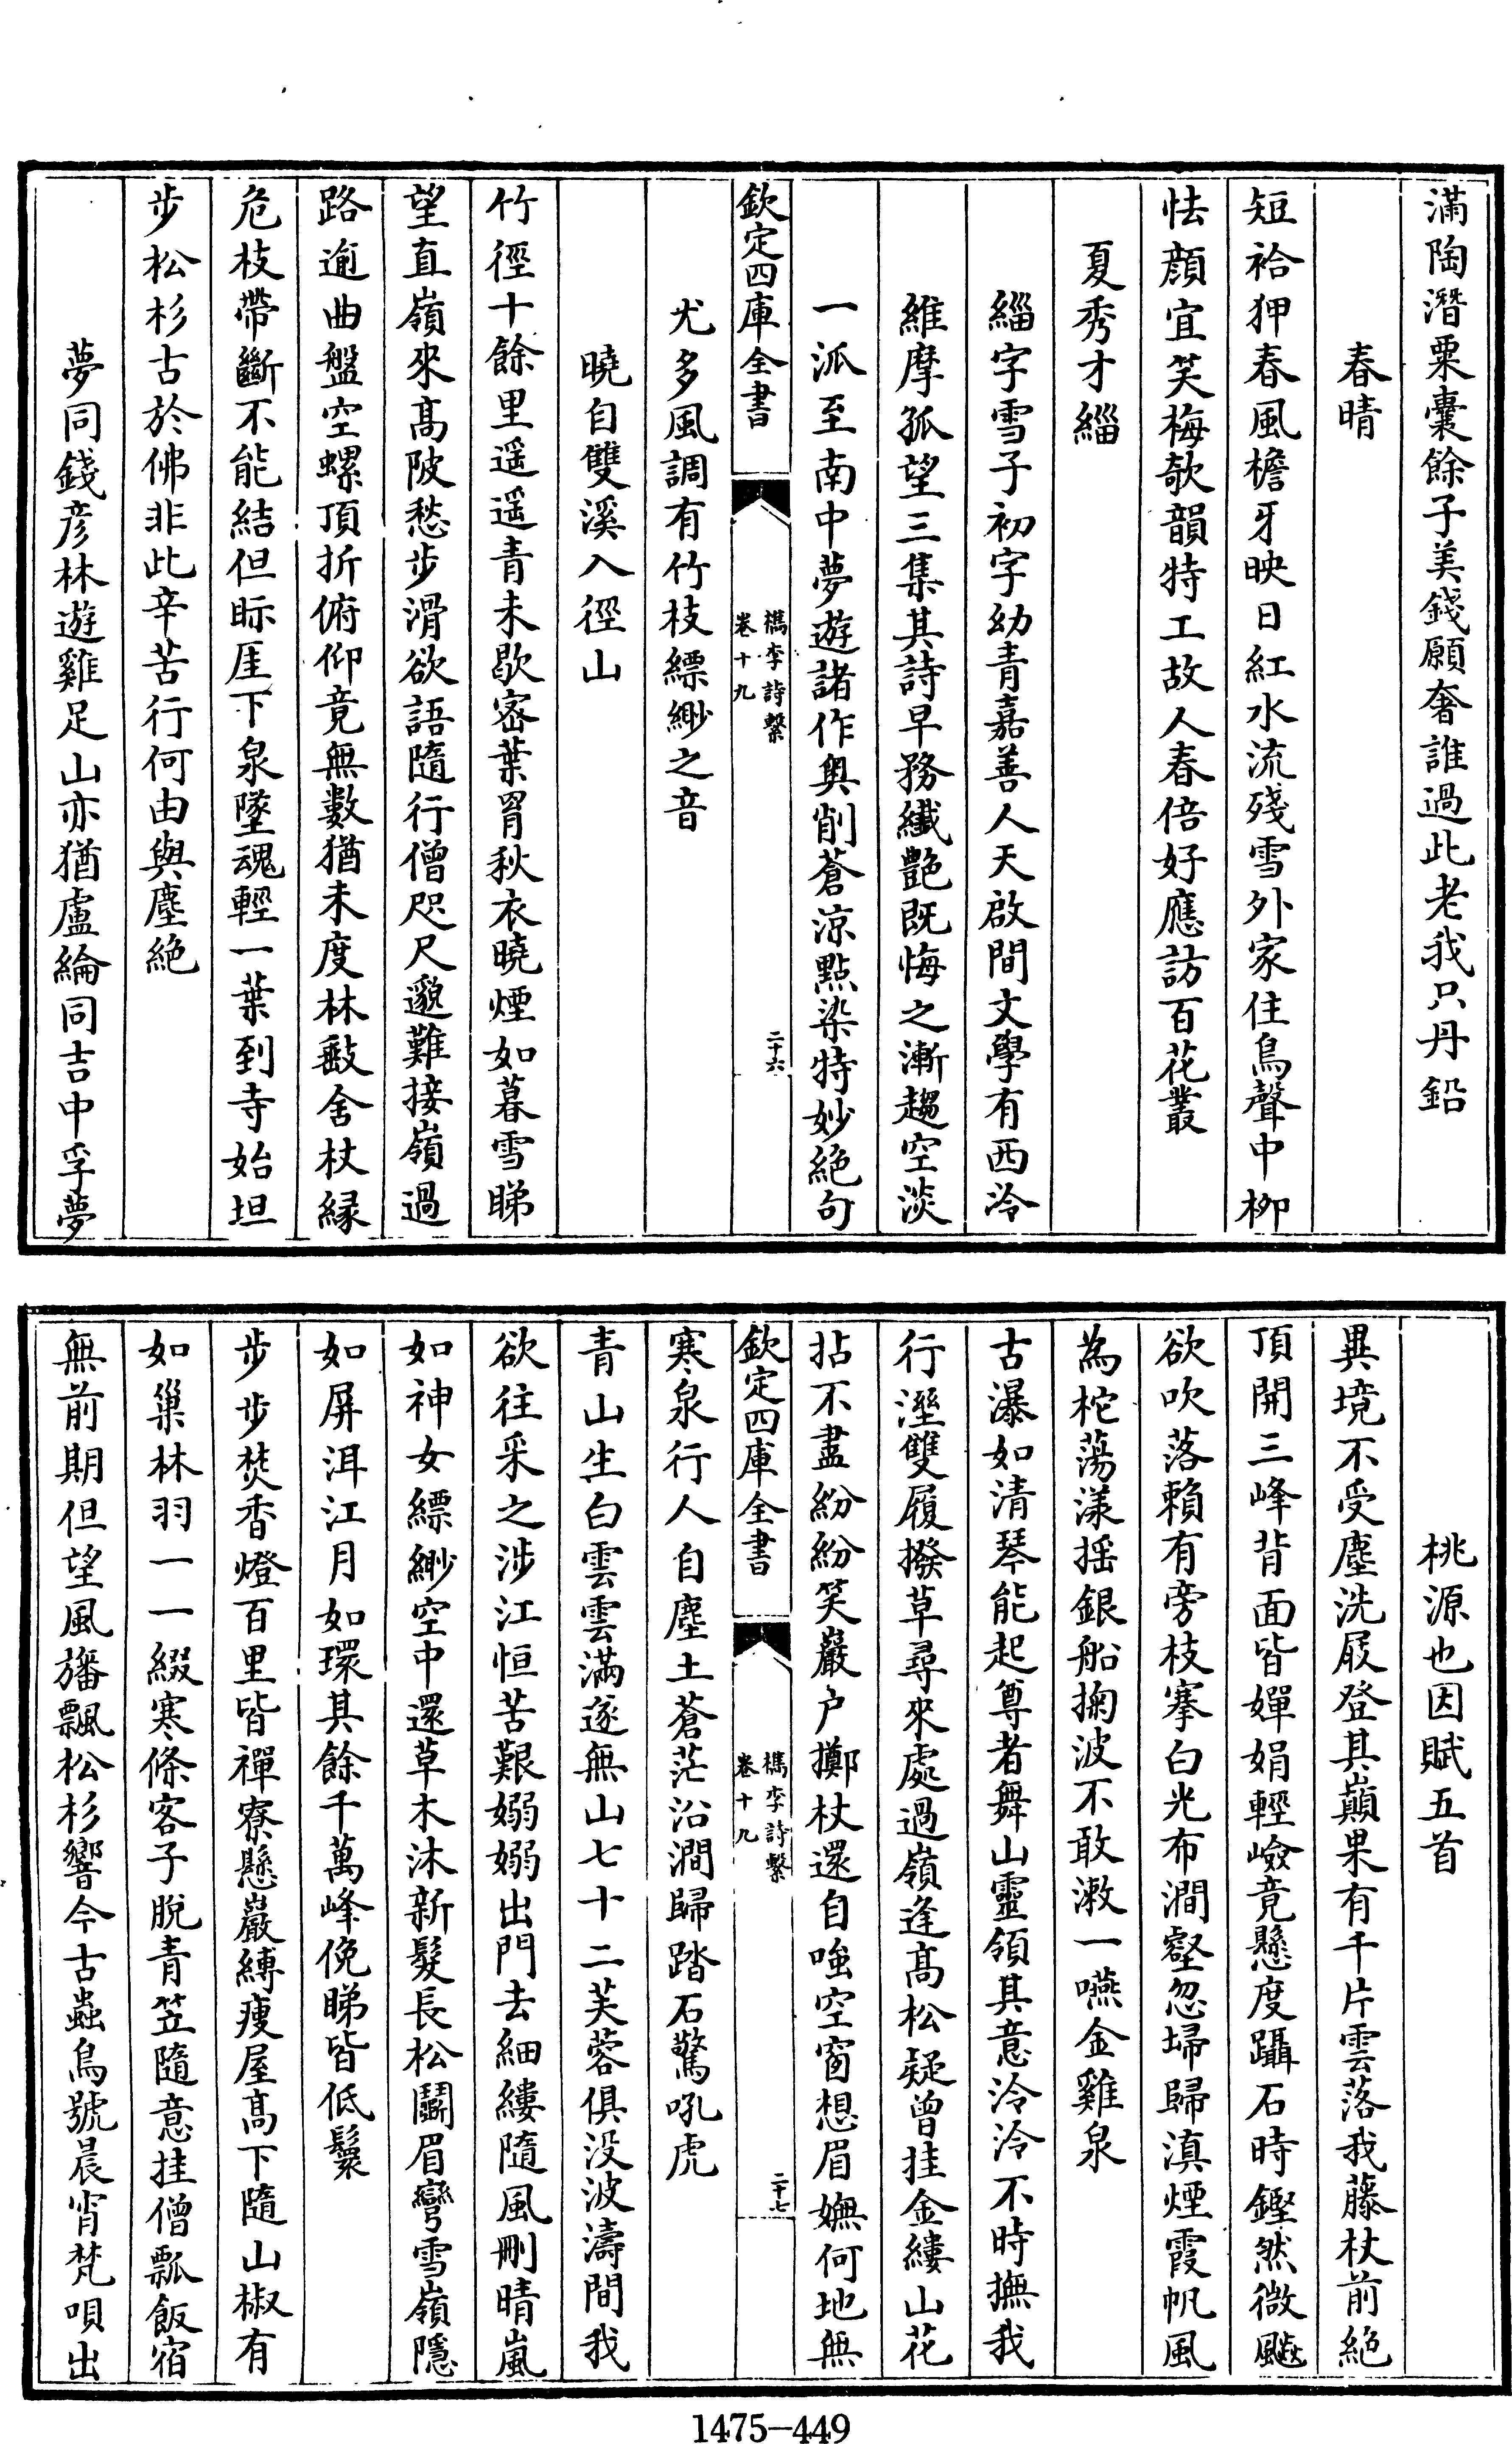 滿陶潛粟囊餘子美錢願奢誰過此老我只丹鉛
春晴
短袷狎春風檐牙映日紅水流殘雪外家住鳥聲中柳
怯顔宜笑梅欹韻特工故人春倍好應訪百花叢
夏秀才緇
緇字雪子初字幼青嘉善人天啟間文學有西泠
維摩孤望三集其詩早務纖艷既悔之漸趨空淡
一派至南中夢遊諸作輿削蒼凉點染特妙絶句
欽定四庫全書
檇李詩繫
卷十九
二十六
尤多風調有竹枝縹緲之音
曉自雙溪入徑山
竹徑十餘里遥遥青未歇宻葉罥秋衣曉煙如暮雪睇
望直嶺來髙陂愁步滑欲語隨行僧咫尺邈難接嶺過
路逾曲盤空螺頂折俯仰竟無數猶未度林㪇舍杖縁
危枝帶斷不能結但眎厓下泉墜魂輕一葉到寺始坦
步松杉古於佛非此辛苦行何由與塵絶
夢同錢彦林遊雞足山亦猶盧綸同吉中孚夢
桃源也因賦五首
異境不受塵洗屐登其巔果有千片雲落我藤杖前絶
頂開三峰背面皆嬋娟輕嶮竟懸度躡石時鏗然微颸
欲吹落賴有旁枝搴白光布澗壑忽埽歸滇煙霞帆風
為柁蕩漾揺銀船掬波不敢漱一嚥金雞泉
古瀑如清琴能起尊者舞山靈領其意泠泠不時撫我
行溼雙履撥草尋來處過嶺逢髙松疑曾挂金縷山花
拈不盡紛紛笑巖户擲杖還自嗤空窗想眉嫵何地無
欽定四庫全書
檇李詩繫
卷十九
二十七
寒泉行人自塵土蒼茫沿澗歸踏石驚吼虎
青山生白雲雲滿遂無山七十二芙蓉俱没波濤間我
欲往采之涉江恒苦艱嫋嫋出門去細縷隨風刪晴嵐
如神女縹緲空中還草木沐新髮長松鬬眉彎雪嶺隱
如屏洱江月如環其餘千萬峰俛睇皆低鬟
步步焚香燈百里皆禪寮懸巖縛瘦屋髙下隨山椒有
如巢林羽一一綴寒條客子脫青笠隨意挂僧瓢飯宿
無前期但望風旛飄松杉響今古蟲鳥號晨宵梵唄出
1475-449